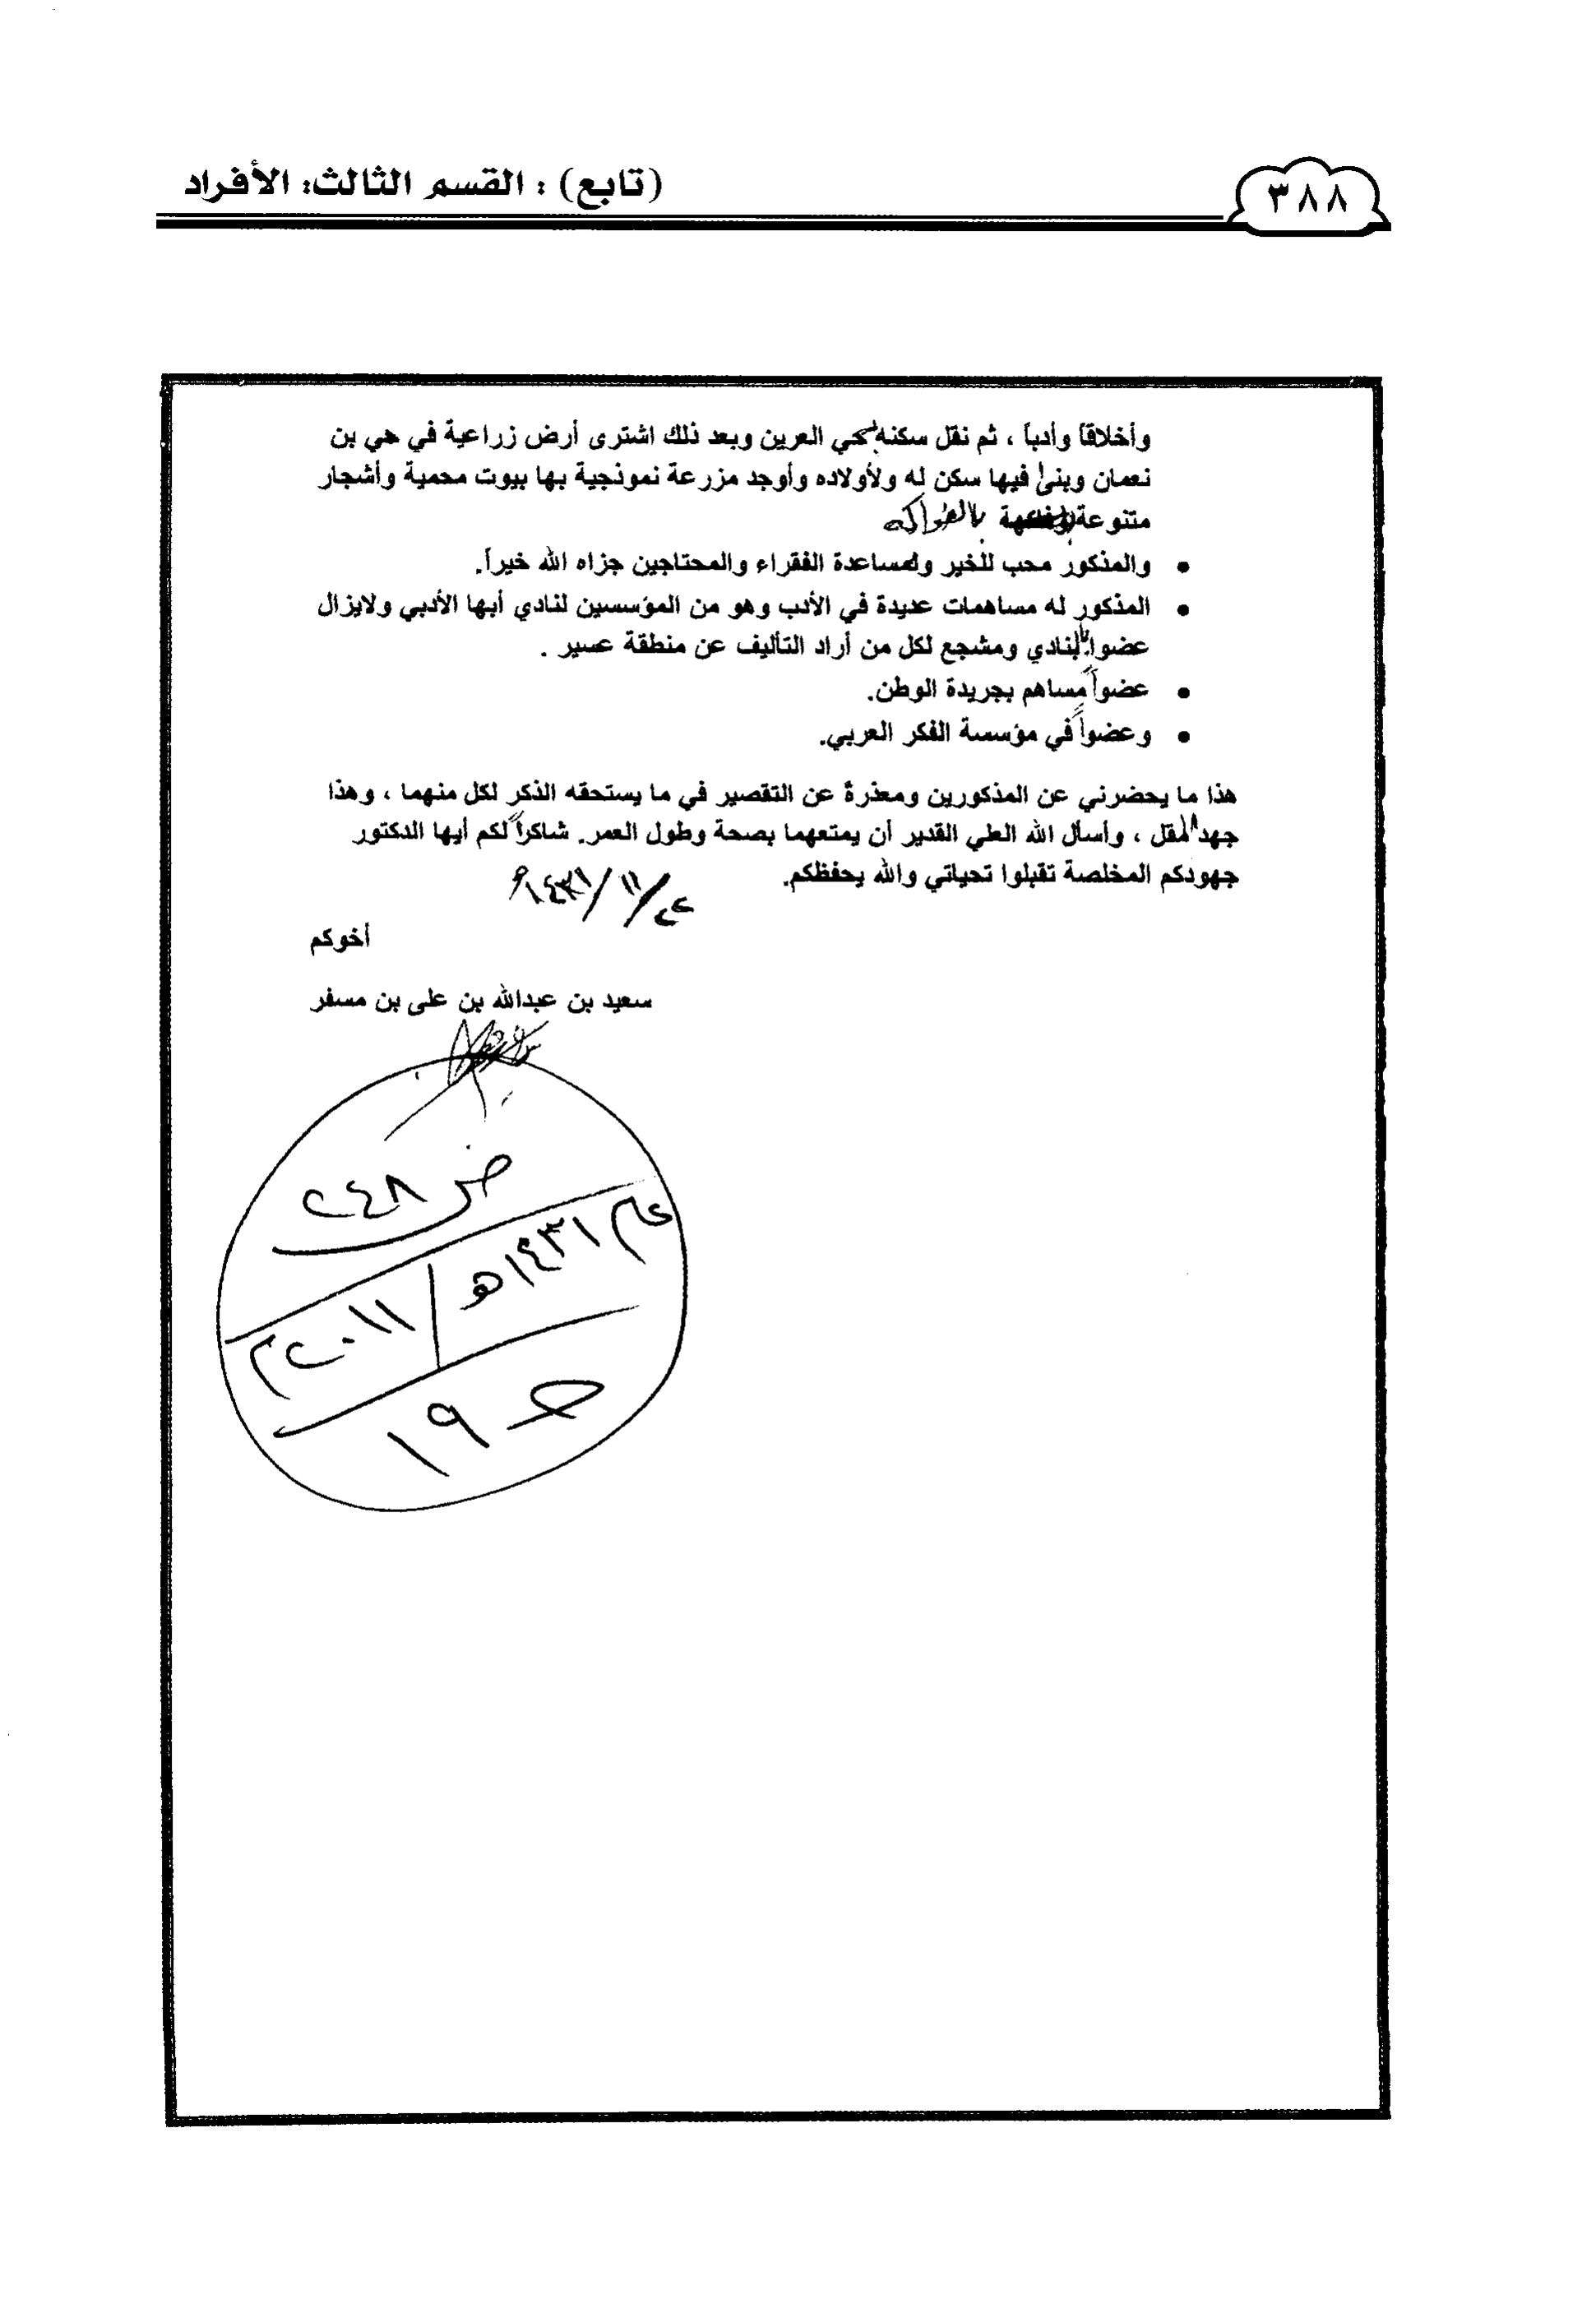 ٣٨٨
(تابع) : القسم الثالث: الأفراد
وأخلاقاً وأدباً ، ثم نقل سكنه لحي العرين وبعد ذلك اشترى أرض زراعية في حي بن
نعمان وبنى فيها سكن له ولأولاده وأوجد مزرعة نموذجية بها بيوت محمية وأشجار
متنوعة بالفواكه
• والمذكور محب للخير ولمساعدة الفقراء والمحتاجين جزاه الله خيراً.
• المذكور له مساهمات عديدة في الأدب وهو من المؤسسين لنادي أبها الأدبي ولايزال
عضواً بالنادي ومشجع لكل من أراد التأليف عن منطقة عسير .
• عضواً مساهم بجريدة الوطن.
• وعضواً في مؤسسة الفكر العربي.
هذا ما يحضرني عن المذكورين ومعذرةً عن التقصير في ما يستحقه الذكر لكل منهما ، وهذا
جهد المقل ، وأسأل الله العلي القدير أن يمتعهما بصحة وطول العمر. شاكراً لكم أيها الدكتور
جهودكم المخلصة تقبلوا تحياتي والله يحفظكم.
/١١/١٤٣١
أخوكم
سعيد بن عبدالله بن على بن مسفر
ض ٢٤٨
عام ١٤٣١هـ / ٢٠١١م
حـ ١٩